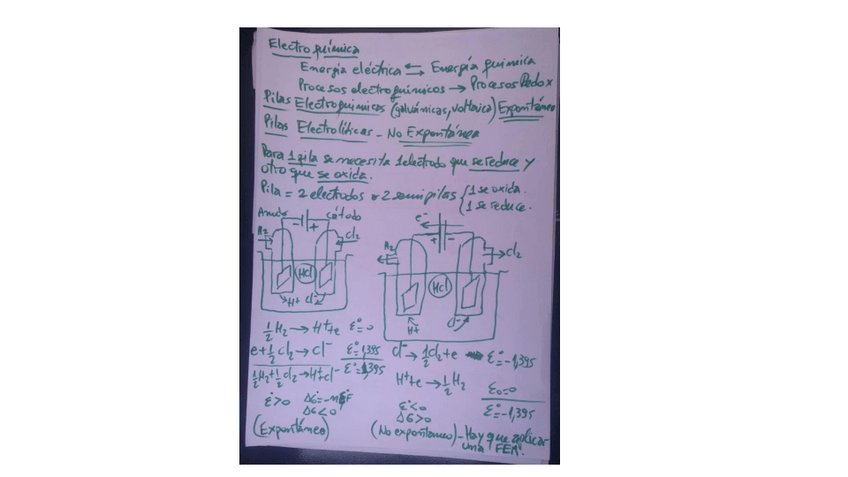 Electroquímica
Energía eléctrica ⇆ Energía química
Procesos electroquímicos → Procesos Redox
Pilas Electroquimicas (galvánicas, voltaica) Expontánea
Pilas Electrolíticas - No Expontánea
Para 1 pila se necesita 1 electrodo que se reduce y
otro que se oxida.
Pila = 2 electrodos = 2 semipilas { 1 se oxida.
1 se reduce.
Anodo - + cátodo
H2 Cl2
HCl
H+ Cl-
e-
+ -
H2 Cl2
HCl
H+ Cl-
1/2 H2 → H+ + e ε° = 0
e + 1/2 Cl2 → Cl- ε° = 1,395
1/2 H2 + 1/2 Cl2 → H+ + Cl- ε° = 1,395
ε° > 0 ΔG° = -nε°F
ΔG < 0
(Expontáneo)
Cl- → 1/2 Cl2 + e ε° = -1,395
H+ + e → 1/2 H2 ε0 = 0
ε° = -1,395
ε° < 0
ΔG > 0
(No expontaneo) - Hay que aplicar
una FEM.